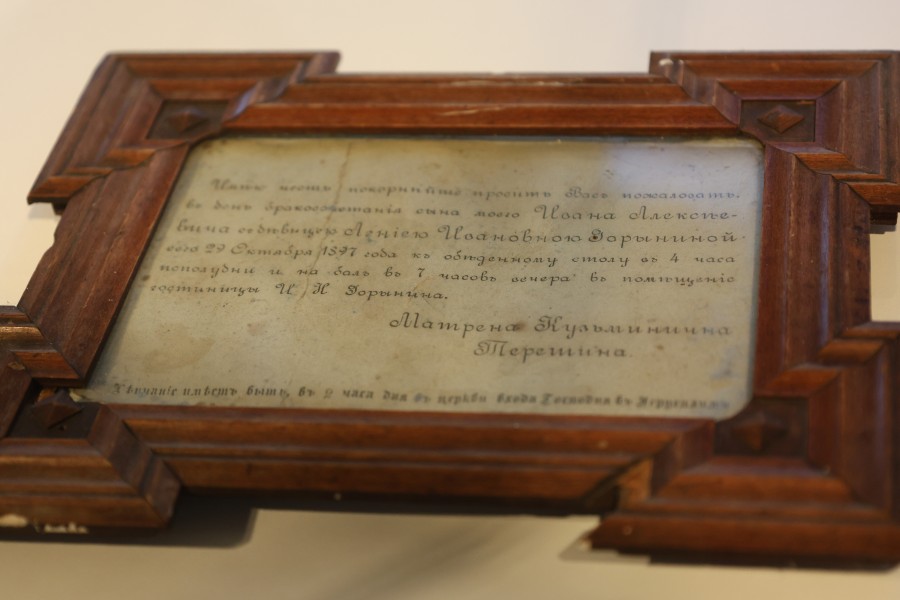 Имѣю честь покорнѣйше просить Васъ пожаловать,
въ день бракосочетанія сына моего Ивана Алексѣе-
вича съ дѣвицею Ксеніею Ивановною Дорыниной
сего 29 Октября 1897 года къ обѣденному столу въ 4 часа
пополудни и на балъ въ 7 часовъ вечера въ помѣщеніе
гостиницы И. Н Дорынина.
Матрена Кузьминична
Терешина
Вѣнчаніе имѣетъ быть, въ 2 часа дня въ церкви входа Господня въ Іерусалимъ